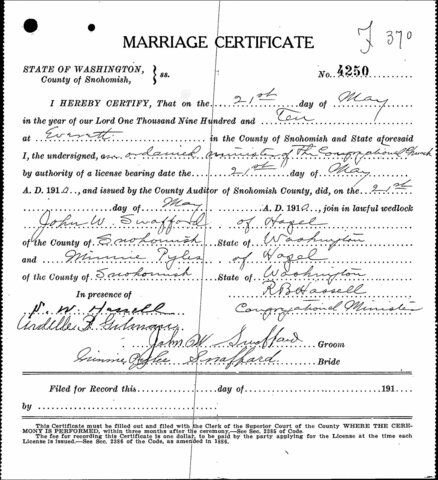 J 370
MARRIAGE CERTIFICATE
STATE OF WASHINGTON, County of Snohomish, } ss. No. 4250
I HEREBY CERTIFY, That on the 21st day of May
in the year of our Lord One Thousand Nine Hundred and Ten
at Everett in the County of Snohomish and State aforesaid
I, the undersigned, an ordained minister of the Congregational Church
by authority of a license bearing date the 21st day of May
A. D. 1910, and issued by the County Auditor of Snohomish County, did, on the 21st
day of May A. D. 1910, join in lawful wedlock
John W. Swafford of Hazel
of the County of Snohomish State of Washington
and Minnie Pyles of Hazel
of the County of Snohomish State of Washington
In presence of R B Hassell
N. W. Hassell Congregational Minister
John W. Swafford Groom
Minnie Pyles Swafford Bride
Filed for Record this day of 191
by
This Certificate must be filled out and filed with the Clerk of the Superior Court of the County WHERE THE CEREMONY IS PERFORMED, within three months after the ceremony.—See Sec. 2385 of Code.
The fee for recording this Certificate is one dollar, to be paid by the party applying for the License at the time each License is issued.—See Sec. 2286 of Code, as amended in 1886.